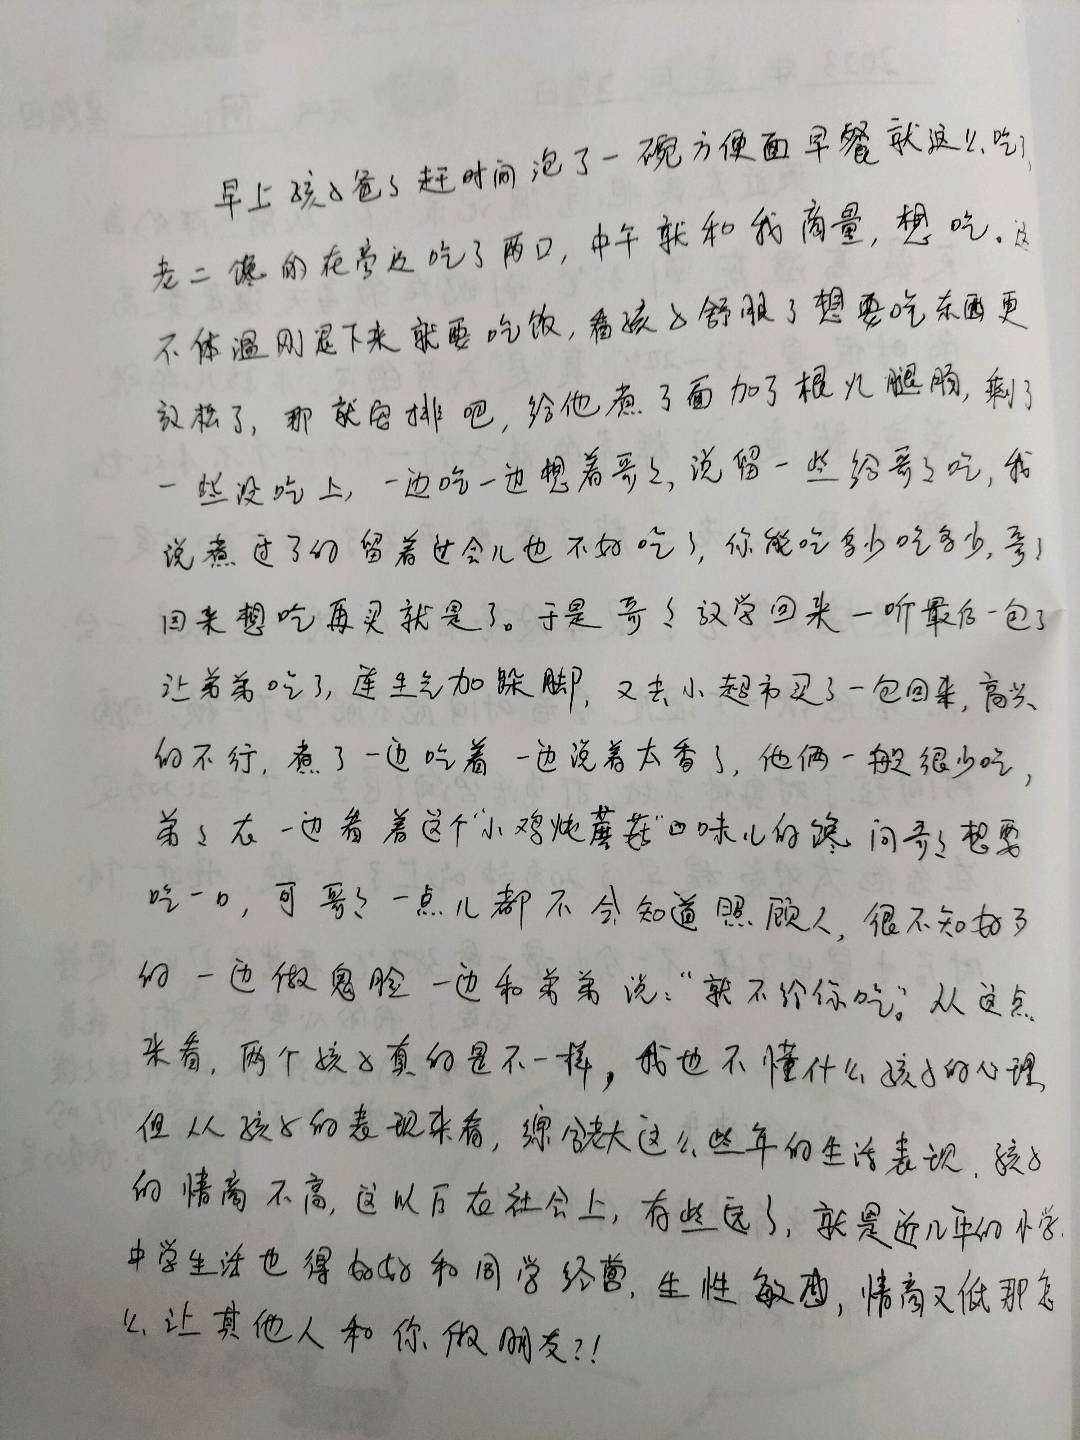 早上孩子爸爸赶时间泡了一碗方便面早餐就这么吃了,
老二馋的在旁边吃了两口,中午就和我商量,想吃。这
不体温刚退下来就要吃饭,看孩子舒服了想要吃东西更
放松了,那就安排吧,给他煮了面加了根火腿肠,剩了
一些没吃上,一边吃一边想着哥哥,说留一些给哥哥吃,我
说煮过了的留着过会儿也不好吃了,你能吃多少吃多少,哥哥
回来想吃再买就是了。于是哥哥放学回来一听最后一包了
让弟弟吃了,连生气加跺脚,又去小超市买了一包回来,高兴
的不行,煮了一边吃着一边说着太香了,他俩一般很少吃,
弟弟在一边看着这个“小鸡炖蘑菇”口味儿的馋问哥哥想要
吃一口,可哥哥一点儿都不会知道照顾人,很不知好歹
的一边做鬼脸一边和弟弟说:“就不给你吃”。从这点
来看,两个孩子真的是不一样,我也不懂什么孩子的心理
但从孩子的表现来看,综合老大这么些年的生活表现,孩子
的情商不高,这以后在社会上,有些远了,就是近几年的小学.
中学生活也得好好和同学经营,生性敏感,情商又低那怎
么让其他人和你做朋友?!